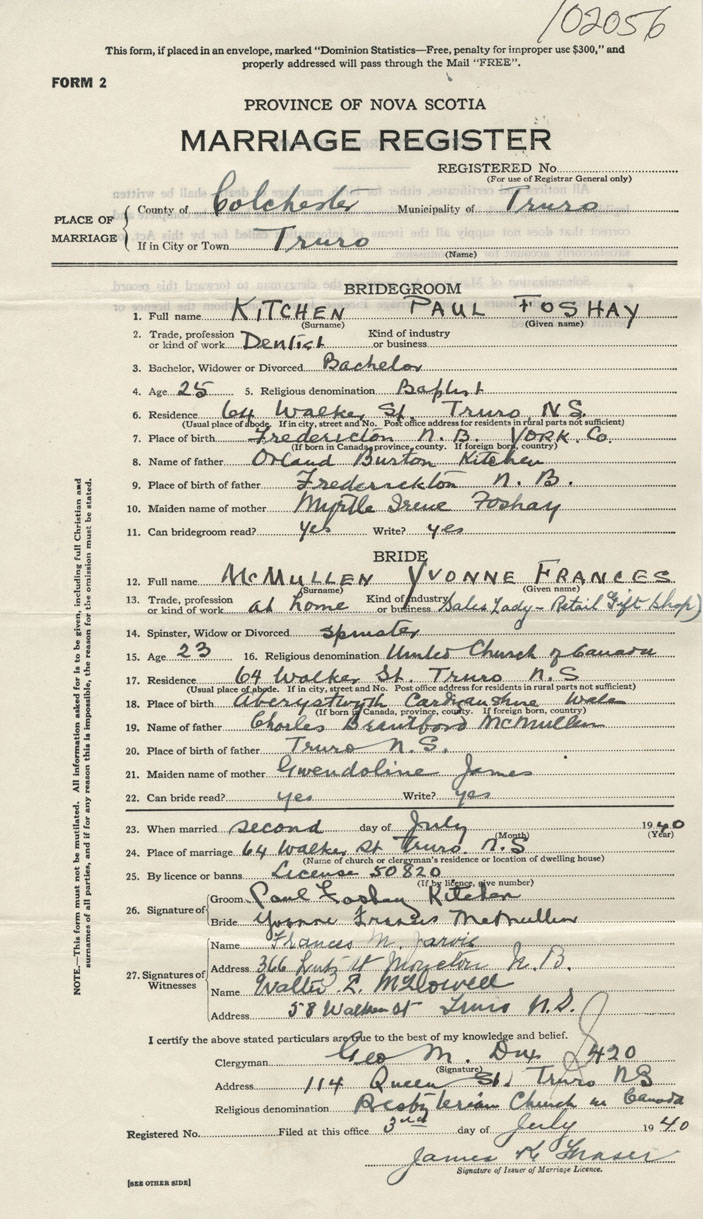 102056
This form, if placed in an envelope, marked "Dominion Statistics—Free, penalty for improper use $300," and
properly addressed will pass through the Mail "FREE".
FORM 2
PROVINCE OF NOVA SCOTIA
MARRIAGE REGISTER
REGISTERED No.
(For use of Registrar General only)
PLACE OF MARRIAGE
County of Colchester Municipality of Truro
If in City or Town Truro
(Name)
BRIDEGROOM
1. Full name KITCHEN PAUL FOSHAY
(Surname) (Given name)
2. Trade, profession or kind of work Dentist Kind of industry or business
3. Bachelor, Widower or Divorced Bachelor
4. Age 25 5. Religious denomination Baptist
6. Residence 64 Walker St. Truro N.S.
(Usual place of abode. If in city, street and No. Post office address for residents in rural parts not sufficient)
7. Place of birth Fredericton N.B. YORK Co.
(If born in Canada, province, county. If foreign born, country)
8. Name of father Orland Burton Kitchen
9. Place of birth of father Frederickton N.B.
10. Maiden name of mother Myrtle Irene Foshay
11. Can bridegroom read? yes Write? yes
BRIDE
12. Full name McMULLEN YVONNE FRANCES
(Surname) (Given name)
13. Trade, profession or kind of work at home Kind of industry or business Sales Lady - Retail Gift Shop)
14. Spinster, Widow or Divorced spinster
15. Age 23 16. Religious denomination United Church of Canada
17. Residence 64 Walker St. Truro N.S
(Usual place of abode. If in city, street and No. Post office address for residents in rural parts not sufficient)
18. Place of birth Aberystwyth Cardiganshire Wales
(If born in Canada, province, county. If foreign born, country)
19. Name of father Charles Brantford McMullen
20. Place of birth of father Truro N.S.
21. Maiden name of mother Gwendoline James
22. Can bride read? yes Write? yes
23. When married second day of July 1940
(Month) (Year)
24. Place of marriage 64 Walker St Truro N.S
(Name of church or clergyman's residence or location of dwelling house)
25. By licence or banns License 50820
(If by licence, give number)
26. Signature of
Groom Paul Foshay Kitchen
Bride Yvonne Frances McMullen
27. Signatures of Witnesses
Name Frances M. Jarvis
Address 366 Lutz St Moncton N.B.
Name Walter E. McDowell
Address 58 Walker St Truro N.S.
I certify the above stated particulars are true to the best of my knowledge and belief.
Clergyman Geo M. 420
(Signature)
Address 114 Queen St. Truro NS
Religious denomination Presbyterian Church in Canada
Registered No. Filed at this office 3rd day of July 1940
James K Fraser
Signature of Issuer of Marriage Licence.
[SEE OTHER SIDE]
NOTE.—This form must not be mutilated. All information asked for is to be given, including full Christian and
surnames of all parties, and if for any reason this is impossible, the reason for the omission must be stated.